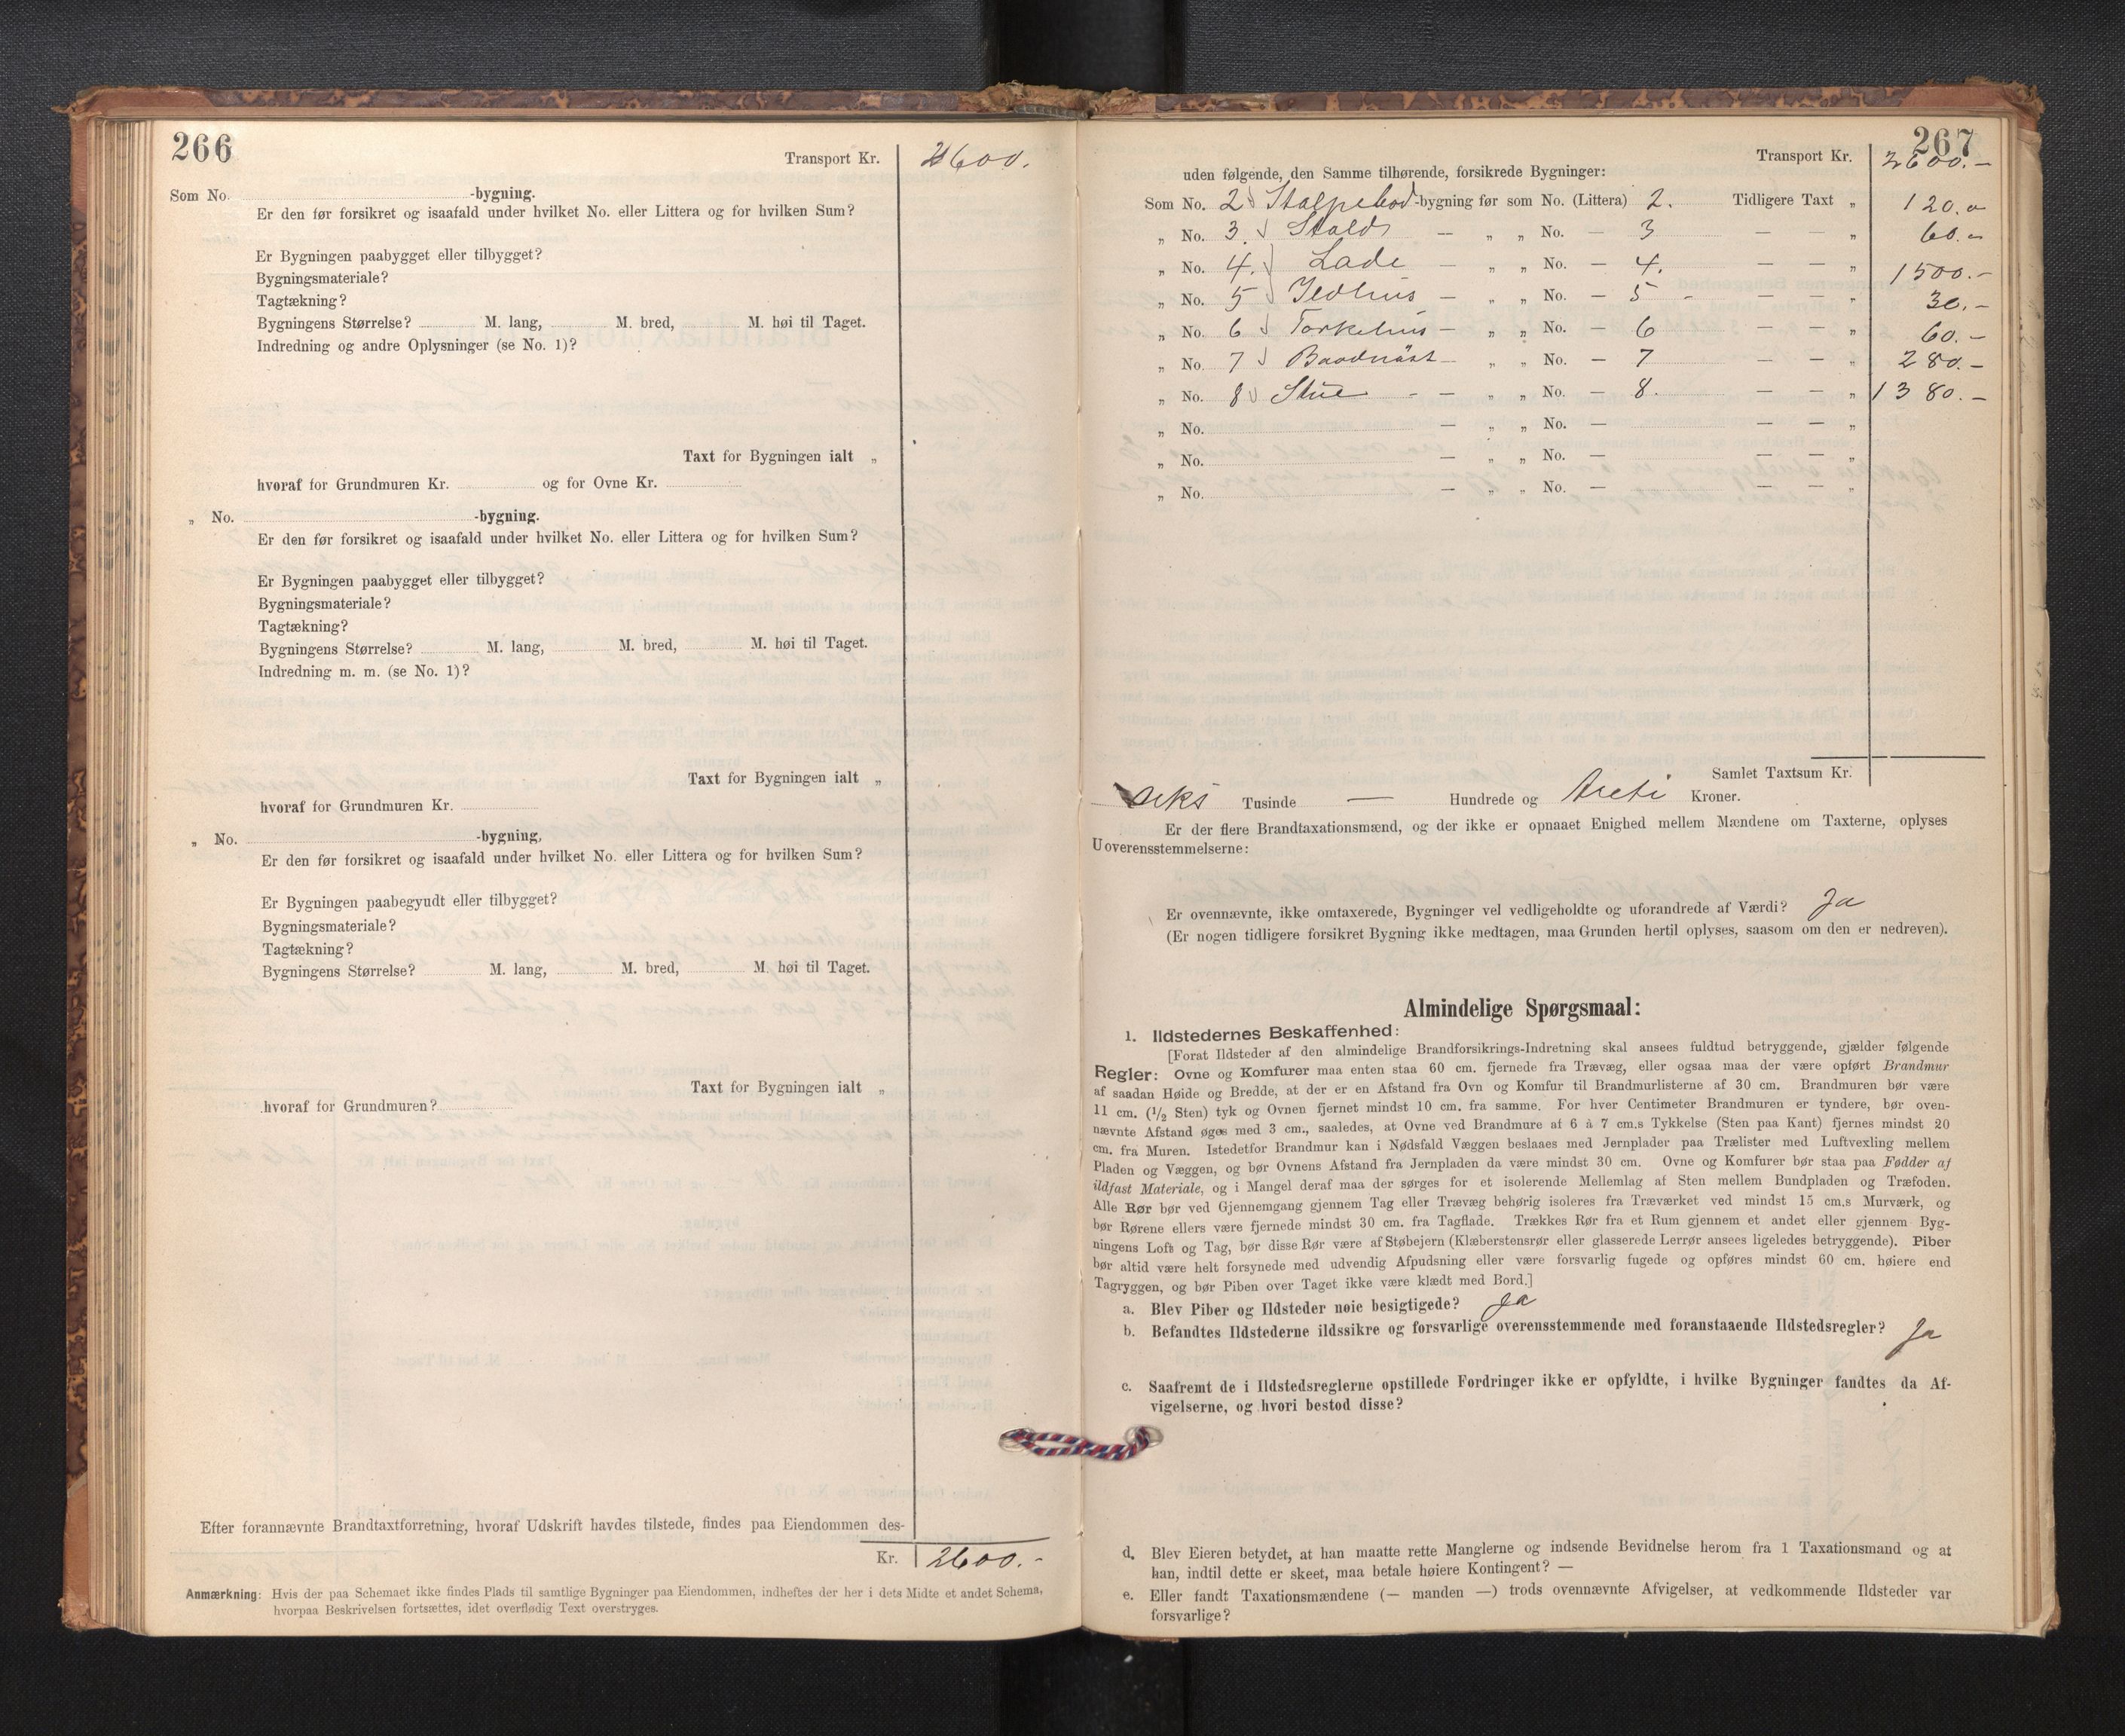 266
Transport Kr. 2600.
Som No. -bygning.
Er den før forsikret og isaafald under hvilket No. eller Littera og for hvilken Sum?
Er Bygningen paabygget eller tilbygget?
Bygningsmateriale?
Tagtækning?
Bygningens Størrelse? M. lang, M. bred, M. høi til Taget.
Indredning og andre Oplysninger (se No. 1)?
Taxt for Bygningen ialt „
hvoraf for Grundmuren Kr. og for Ovne Kr.
„ No. -bygning.
Er den før forsikret og isaafald under hvilket No. eller Littera og for hvilken Sum?
Er Bygningen paabygget eller tilbygget?
Bygningsmateriale?
Tagtækning?
Bygningens Størrelse? M. lang, M. bred, M. høi til Taget.
Indredning m. m. (se No. 1)?
Taxt for Bygningen ialt „
hvoraf for Grundmuren Kr.
„ No. -bygning,
Er den før forsikret og isaafald under hvilket No. eller Littera og for hvilken Sum?
Er Bygningen paabegyudt eller tilbygget?
Bygningsmateriale?
Tagtækning?
Bygningens Størrelse? M. lang, M. bred, M. høi til Taget.
Taxt for Bygningen ialt „
hvoraf for Grundmuren?
Efter forannævnte Brandtaxtforretning, hvoraf Udskrift havdes tilstede, findes paa Eiendommen des-
Kr. 2600.-
Anmærkning: Hvis der paa Schemaet ikke findes Plads til samtlige Bygninger paa Eiendommen, indheftes der her i dets Midte et andet Schema,
hvorpaa Beskrivelsen fortsættes, idet overflødig Text overstryges.
267
Transport Kr. 2600.-
uden følgende, den Samme tilhørende, forsikrede Bygninger:
Som No. 2 Stolpebod-bygning før som No. (Littera) 2. Tidligere Taxt „ 120.-
„ No. 3. Stald — „ „ No. — 3 — — „ 60.-
„ No. 4. Lade — „ „ No. — 4. — — „ 1500.-
„ No. 5 Ildhus — „ „ No. — 5 - — — „ 30.-
„ No. 6 Torkehus — „ „ No. — 6 — — „ 60.-
„ No. 7 Baadnöst — „ „ No. — 7 — — „ 280.-
„ No. 8 Stue - — „ „ No. — 8. — — „ 1380.-
„ No. — „ „ No. — — — „
„ No. — „ „ No. — — — „
„ No. — „ „ No. — — — „
Samlet Taxtsum Kr.
seks Tusinde — Hundrede og treti Kroner.
Er der flere Brandtaxationsmænd, og der ikke er opnaaet Enighed mellem Mændene om Taxterne, oplyses
Uoverensstemmelserne:
Er ovennævnte, ikke omtaxerede, Bygninger vel vedligeholdte og uforandrede af Værdi? Ja
(Er nogen tidligere forsikret Bygning ikke medtagen, maa Grunden hertil oplyses, saasom om den er nedreven).
Almindelige Spørgsmaal:
1. Ildstedernes Beskaffenhed:
[Forat Ildsteder af den almindelige Brandforsikrings-Indretning skal ansees fuldtud betryggende, gjælder følgende
Regler: Ovne og Komfurer maa enten staa 60 cm. fjernede fra Trævæg, eller ogsaa maa der være opført Brandmur
af saadan Høide og Bredde, at der er en Afstand fra Ovn og Komfur til Brandmurlisterne af 30 cm. Brandmuren bør være
11 cm. (1/2 Sten) tyk og Ovnen fjernet mindst 10 cm. fra samme. For hver Centimeter Brandmuren er tyndere, bør oven-
nævnte Afstand øges med 3 cm., saaledes, at Ovne ved Brandmure af 6 à 7 cm.s Tykkelse (Sten paa Kant) fjernes mindst 20
cm. fra Muren. Istedetfor Brandmur kan i Nødsfald Væggen beslaaes med Jernplader paa Trælister med Luftvexling mellem
Pladen og Væggen, og bør Ovnens Afstand fra Jernpladen da være mindst 30 cm. Ovne og Komfurer bør staa paa Fødder af
ildfast Materiale, og i Mangel deraf maa der sørges for et isolerende Mellemlag af Sten mellem Bundpladen og Træfoden.
Alle Rør bør ved Gjennemgang gjennem Tag eller Trævæg behørig isoleres fra Træværket ved mindst 15 cm.s Murværk, og
bør Rørene ellers være fjernede mindst 30 cm. fra Tagflade. Trækkes Rør fra et Rum gjennem et andet eller gjennem Byg-
ningens Loft og Tag, bør disse Rør være af Støbejern (Klæberstensrør eller glasserede Lerrør ansees ligeledes betryggende). Piber
bør altid være helt forsynede med udvendig Afpudsning eller være forsvarlig fugede og opføres mindst 60 cm. høiere end
Tagryggen, og bør Piben over Taget ikke være klædt med Bord.]
a. Blev Piber og Ildsteder nøie besigtigede? Ja
b. Befandtes Ildstederne ildssikre og forsvarlige overensstemmende med foranstaaende Ildstedsregler? Ja
c. Saafremt de i Ildstedsreglerne opstillede Fordringer ikke er opfyldte, i hvilke Bygninger fandtes da Af-
vigelserne, og hvori bestod disse?
d. Blev Eieren betydet, at han maatte rette Manglerne og indsende Bevidnelse herom fra 1 Taxationsmand og at
han, indtil dette er skeet, maa betale høiere Kontingent? —
e. Eller fandt Taxationsmændene (— manden —) trods ovennævnte Afvigelser, at vedkommende Ildsteder var
forsvarlige?